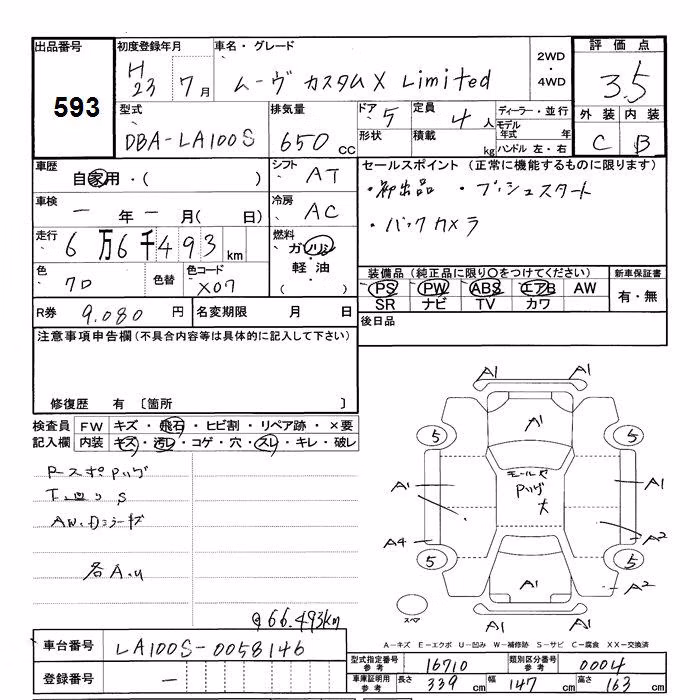 出品番号
593
初度登録年月
H 23 7月
車名・グレード
ムーヴ カスタムX Limited
2WD
・
4WD
評価点
3.5
外装 内装
C B
型式
DBA-LA100S
排気量
650 CC
ドア 5
定員 4人
形状
積載 kg
ディーラー・並行
モデル年式 年
ハンドル 左・右
車歴
自家用・( )
シフト
AT
セールスポイント (正常に機能するものに限ります)
・初出品 ・プッシュスタート
・バックカメラ
車検
ー年ー月( 日)
冷房
AC
走行
6万6千493km
燃料
ガソリン
・
軽油
( )
色
クロ
色替
色コード
X07
装備品 (純正品に限り○をつけてください)
PS PW ABS エアB AW
SR ナビ TV カワ
新車保証書
有・無
R券 9.080円
名変期限 月 日
後日品
注意事項申告欄 (不具合内容等は具体的に記入して下さい)
修復歴 有 〔箇所 〕
検査員記入欄
FW キズ・飛石・ヒビ割・リペア跡・×要
内装 キズ・汚レ・コゲ・穴・スレ・キレ・破レ
AW.Dミラーキズ
各A.U
66.493km
A1 A1
A1
5 5
A1 A1
モールサ
Pハゲ
大
A4 A2
5 5
A1 A2
スペア
A1 A1
A-キズ E-エクボ U-凹み W-補修跡 S-サビ C-腐食 XX-交換済
車台番号
LA100S-0058146
登録番号
ー
型式指定番号 参考
16710
類別区分番号 参考
0004
車庫証明用 参考
長さ 339 cm
幅 147 cm
高さ 163 cm